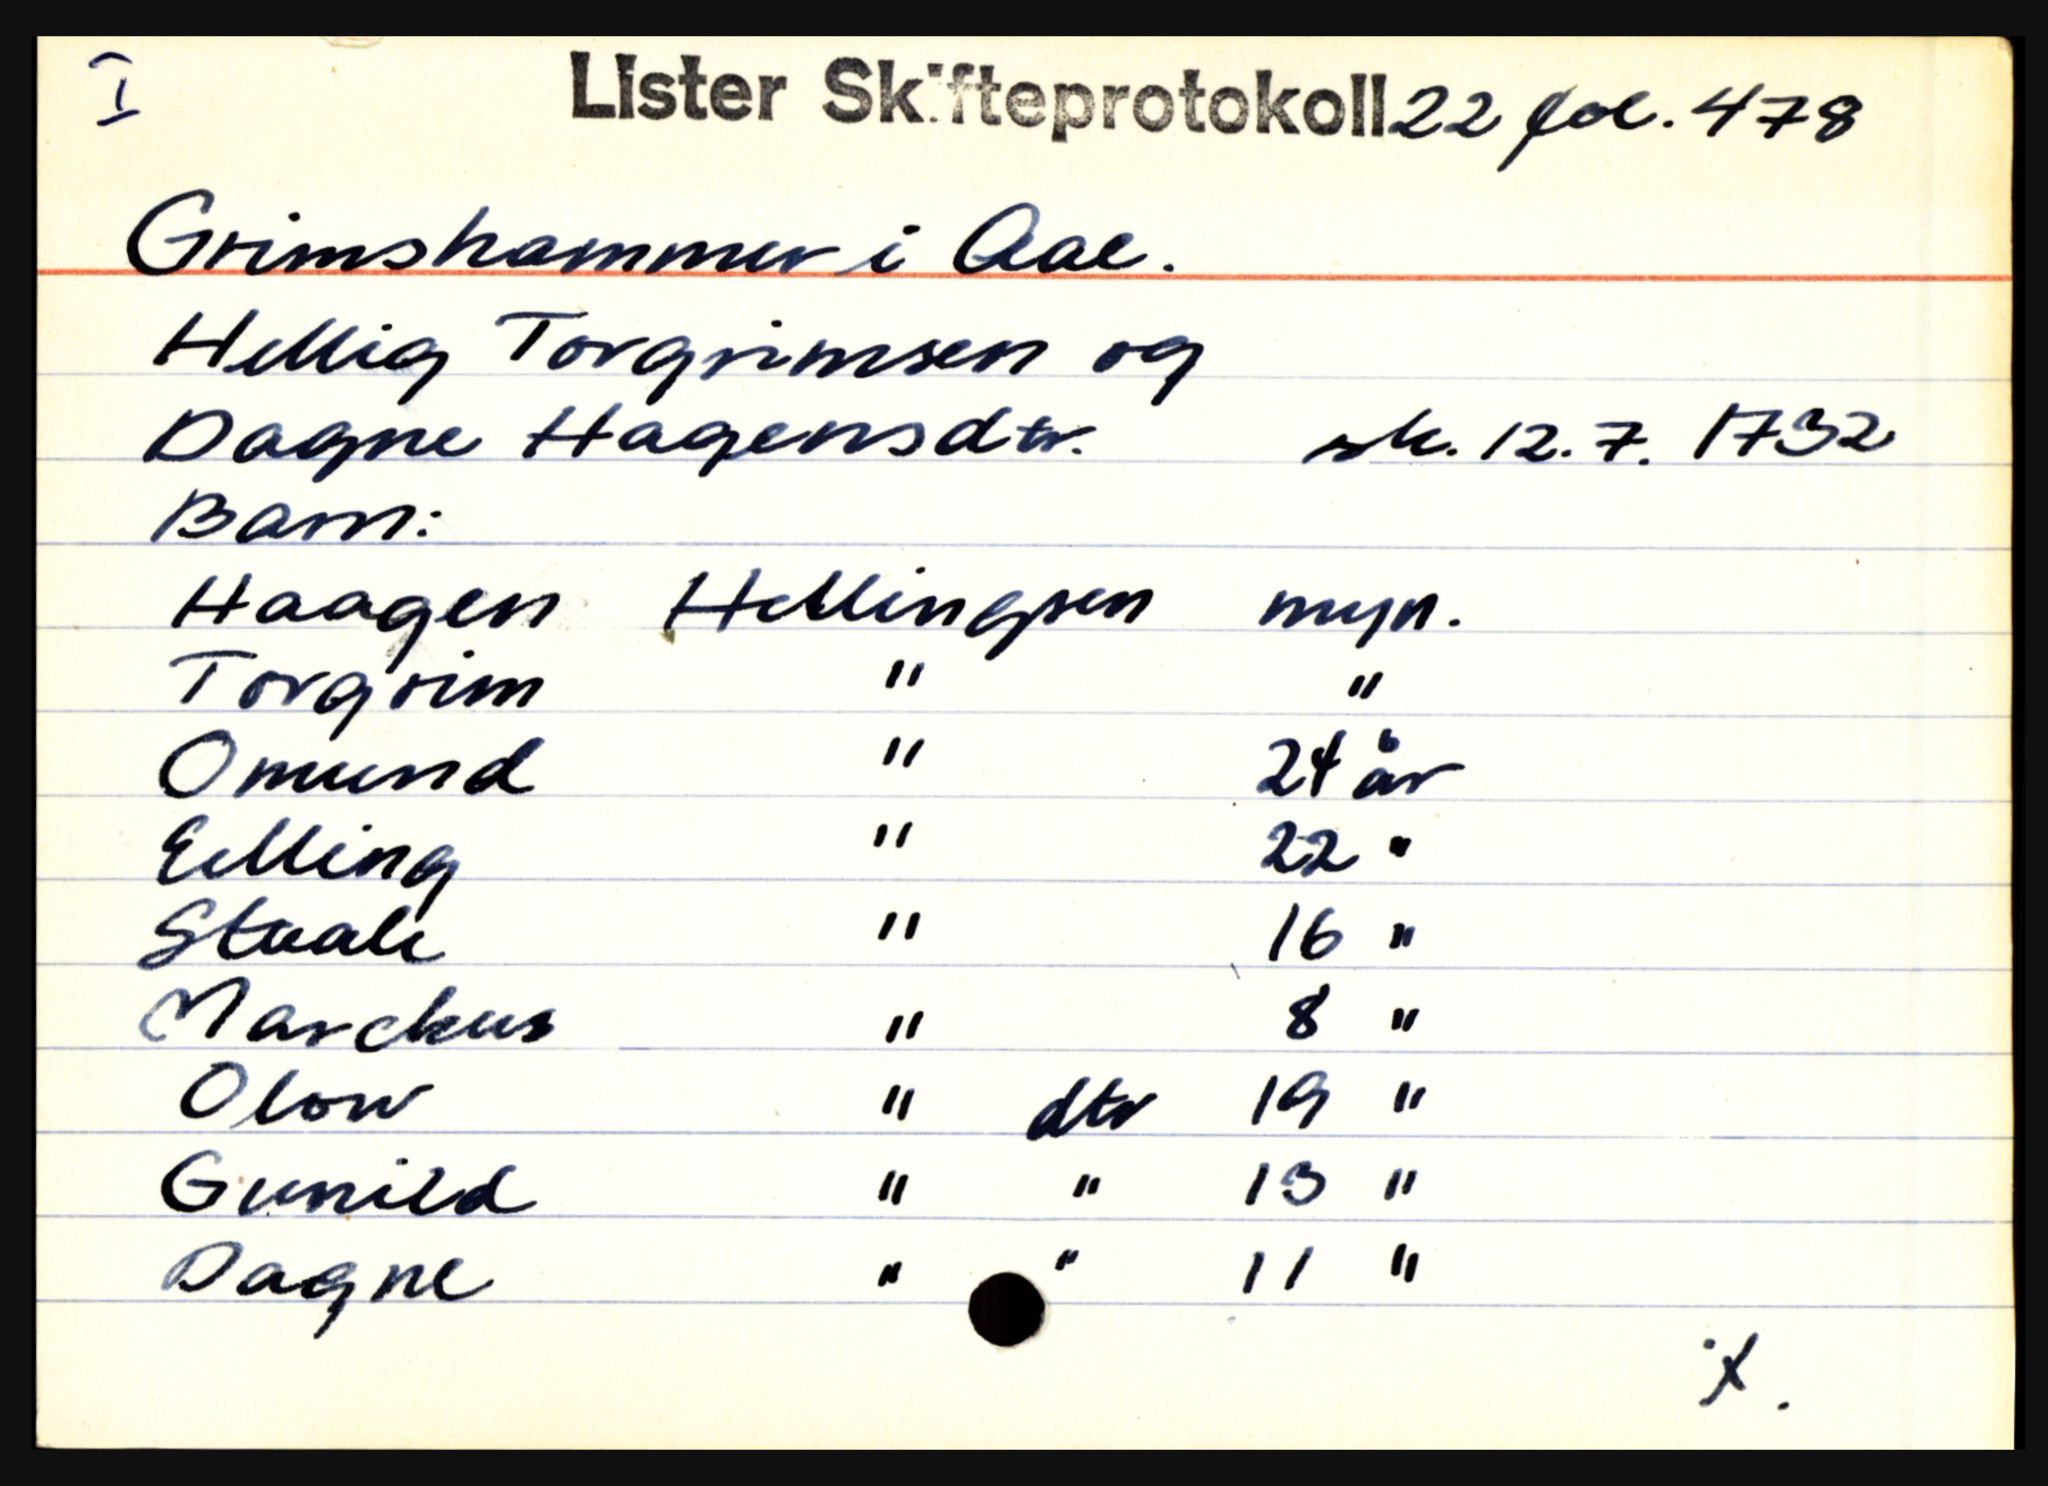 I Lister Skifteprotokoll 22 fol. 478
Grimshammer i Aae.
Hellig Torgrimsen og
Dagne Hagensdtr. sk. 12. 7. 1732
Barn:
Haagen Hellingsen myn.
Torgrim " "
Omund " 24 år
Eelling " 22 "
Staale " 16 "
Marckus " 8 "
Olow " dtr 19 "
Gunild " " 13 "
Dagne " " 11 "